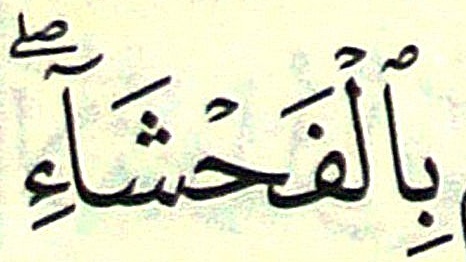 بِٱلْفَحْشَآءِ ۖ